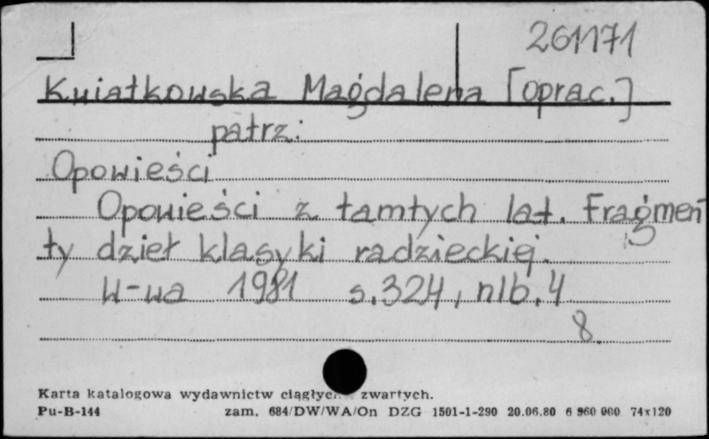 261171
Kwiatkowska Magdalena [oprac.]
patrz:
Opowieści
Opowieści z tamtych lat. Fragmen
ty dzieł klasyki radzieckiej.
W-wa 1981 s. 324, nlb. 4
8.
Karta katalogowa wydawnictw zwartych.
Pu-B-144 zam. 684/DW/WA/On DZG 1501-1-290 20.06.80 6 960 000 74x120